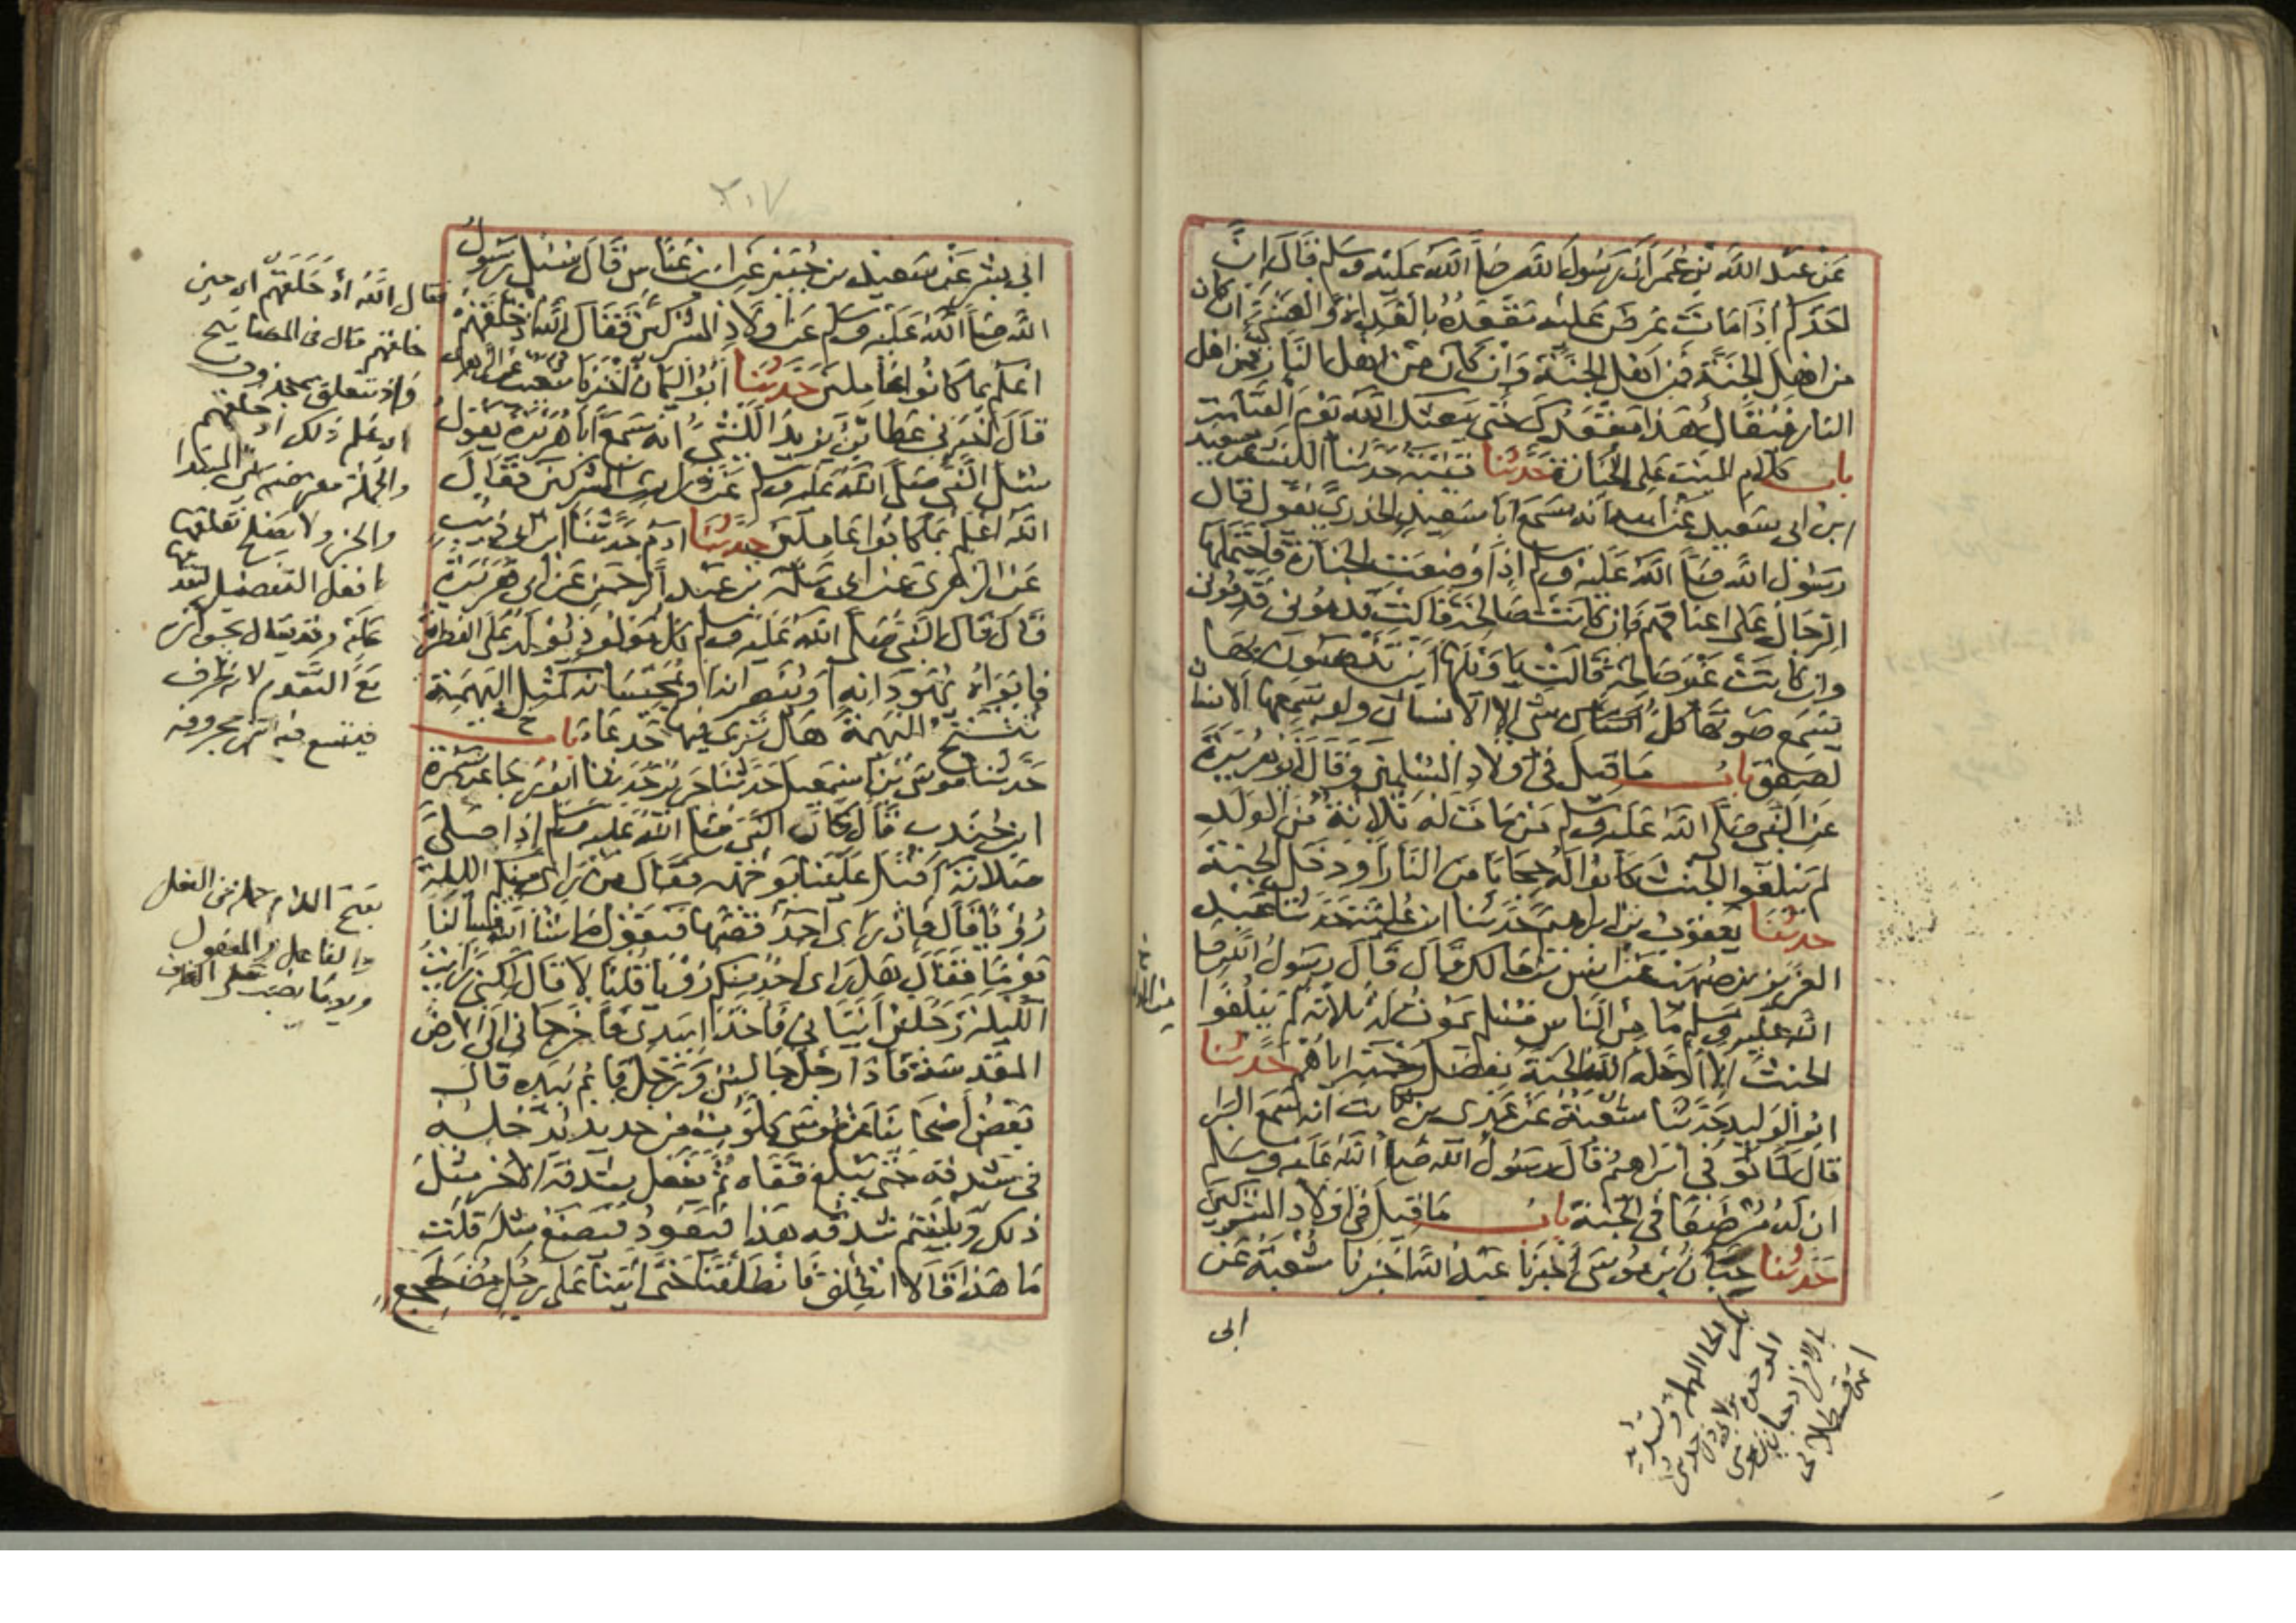 عن عبد الله بن عمر ان رسول الله صلى الله عليه وسلم قال ان
احدكم اذا مات عرض عليه مقعده بالغداة والعشي ان كان
من اهل الجنة فمن اهل الجنة وان كان من اهل النار فمن اهل
النار فيقال هذا مقعدك حتى يبعثك الله يوم القيامة
باب كلام الميت على الجنازة حدثنا قتيبة حدثنا الليث عن سعيد
ابن ابي سعيد عن ابيه انه سمع ابا سعيد الخدري يقول قال
رسول الله صلى الله عليه وسلم اذا وضعت الجنازة فاحتملها
الرجال على اعناقهم فان كانت صالحة قالت قدموني قدموني
وان كانت غير صالحة قالت يا ويلها اين تذهبون بها
يسمع صوتها كل شي الا الانسان ولو سمعها الانسان
لصعق باب ما قيل في اولاد المسلمين وقال ابو هريرة
عن النبي صلى الله عليه وسلم من مات له ثلاثة من الولد
لم يبلغوا الحنث كانوا له حجابا من النار او دخل الجنة
حدثنا يعقوب بن ابراهيم حدثنا ابن علية حدثنا عبد
العزيز بن صهيب عن انس بن مالك قال قال رسول الله صلى
الله عليه وسلم ما من الناس مسلم يموت له ثلاثة لم يبلغوا
الحنث الا ادخله الله الجنة بفضل رحمته اياهم حدثنا
ابو الوليد حدثنا شعبة عن عدي بن ثابت انه سمع البرا
قال لما توفي ابراهيم قال رسول الله صلى الله عليه وسلم
ان له مرضعا في الجنة باب ما قيل في اولاد المشركين
حدثنا حبان بن موسى اخبرنا عبد الله اخبرنا شعبة عن
ابي
بكسر الحا المهملة وتشديد
الموحدة
حدثني
بالافراد حبان بن موسى
انتهى قسطلاني
٢٠٧
ابي بشر عن سعيد بن جبير عن ابن عباس قال سئل رسول
الله صلى الله عليه وسلم عن اولاد المشركين فقال الله اذ خلقهم
اعلم بما كانوا عاملين حدثنا ابو اليمان اخبرنا شعيب عن الزهري
قال اخبرني عطا بن يزيد الليثي انه سمع ابا هريرة يقول
سئل النبي صلى الله عليه وسلم عن ذراري المشركين فقال
الله اعلم بما كانوا عاملين حدثنا ادم حدثنا ابن ابي ذئب
عن الزهري عن ابي سلمة بن عبد الرحمن عن ابي هريرة
قال قال النبي صلى الله عليه وسلم كل مولود يولد على الفطرة
فابواه يهودانه او ينصرانه او يمجسانه كمثل البهيمة
تنتج البهيمة هل ترى فيها جدعا باب
حدثنا موسى بن اسمعيل حدثنا جرير حدثنا ابو رجا عن سمرة
ابن جندب قال كان النبي صلى الله عليه وسلم اذا صلى
صلاة اقبل علينا بوجهه فقال من راى منكم الليلة
رؤيا قال فان راى احد قصها فيقول ما شا الله فسالنا
يوما فقال هل راى احد منكم رؤيا قلنا لا قال لكني رايت
الليلة رجلين اتياني فاخذا بيدي فاخرجاني الى الارض
المقدسة فاذا رجل جالس ورجل قايم بيده قال
بعض اصحابنا عن موسى كلوب من حديد يدخله
في شدقه حتى يبلغ قفاه ثم يفعل بشدقه الاخر مثل
ذلك ويلتئم شدقه هذا فيعود فيصنع مثله قلت
ما هذا قالا انطلق فانطلقنا حتى اتينا على رجل مضطجع
فقال الله اذ خلقهم اي حين
خلقهم قال في المصابيح
واذ تتعلق بمحذوف
اي علم ذلك اذ خلقهم
والجملة معترضة بين المبتدا
والخبر ولا يصح تعلقها
بافعل التفضيل لتقدمها
عليه وقد يقال بجوازه
مع التقدم لانه ظرف
فيتسع فيه
بفتح اللام جملة من الفعل
والفاعل والمفعول
ويوما نصب على الظرف